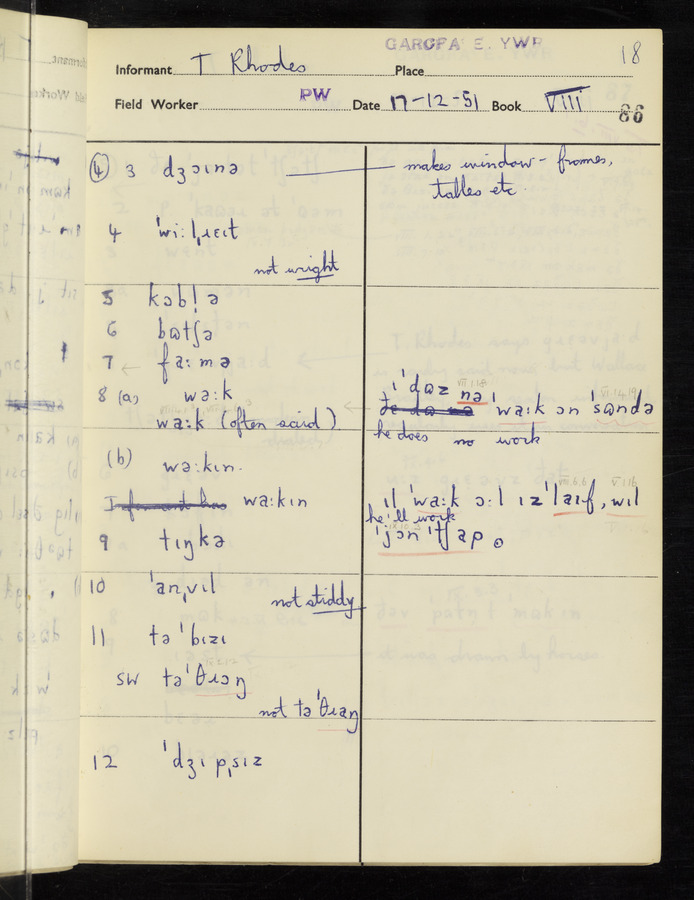 GARGFA E. YWR
18
Informant T Rhodes Place
Field Worker PW Date 17-12-51 Book VIII
86
④ 3 dʒɔɪnə makes window-frames,
tables etc
4 ˈwiːlˌɹɛɪt
not wright
5 kɔblə
6 bʊtʃə
7 faːmə
8 (a) waːk
waːk (often said)
ɪ ˈdʊz nə ˈwaːk ɔn ˈsʊndə
he does no work
(b) waːkɪn.
waːkɪn
ɪl ˈwaːk ɔːl ɪz ˈlaɪf, wɪl
he'll work
ˈjɔn ˈtʃap.
9 tɪŋkə
10 ˈanˌvɪl
not stiddy
11 tə ˈbɪzɪ
SW tə ˈθɹɔŋ
not tə ˈθɹaŋ
12 ˈdʒɪpˌsɪz